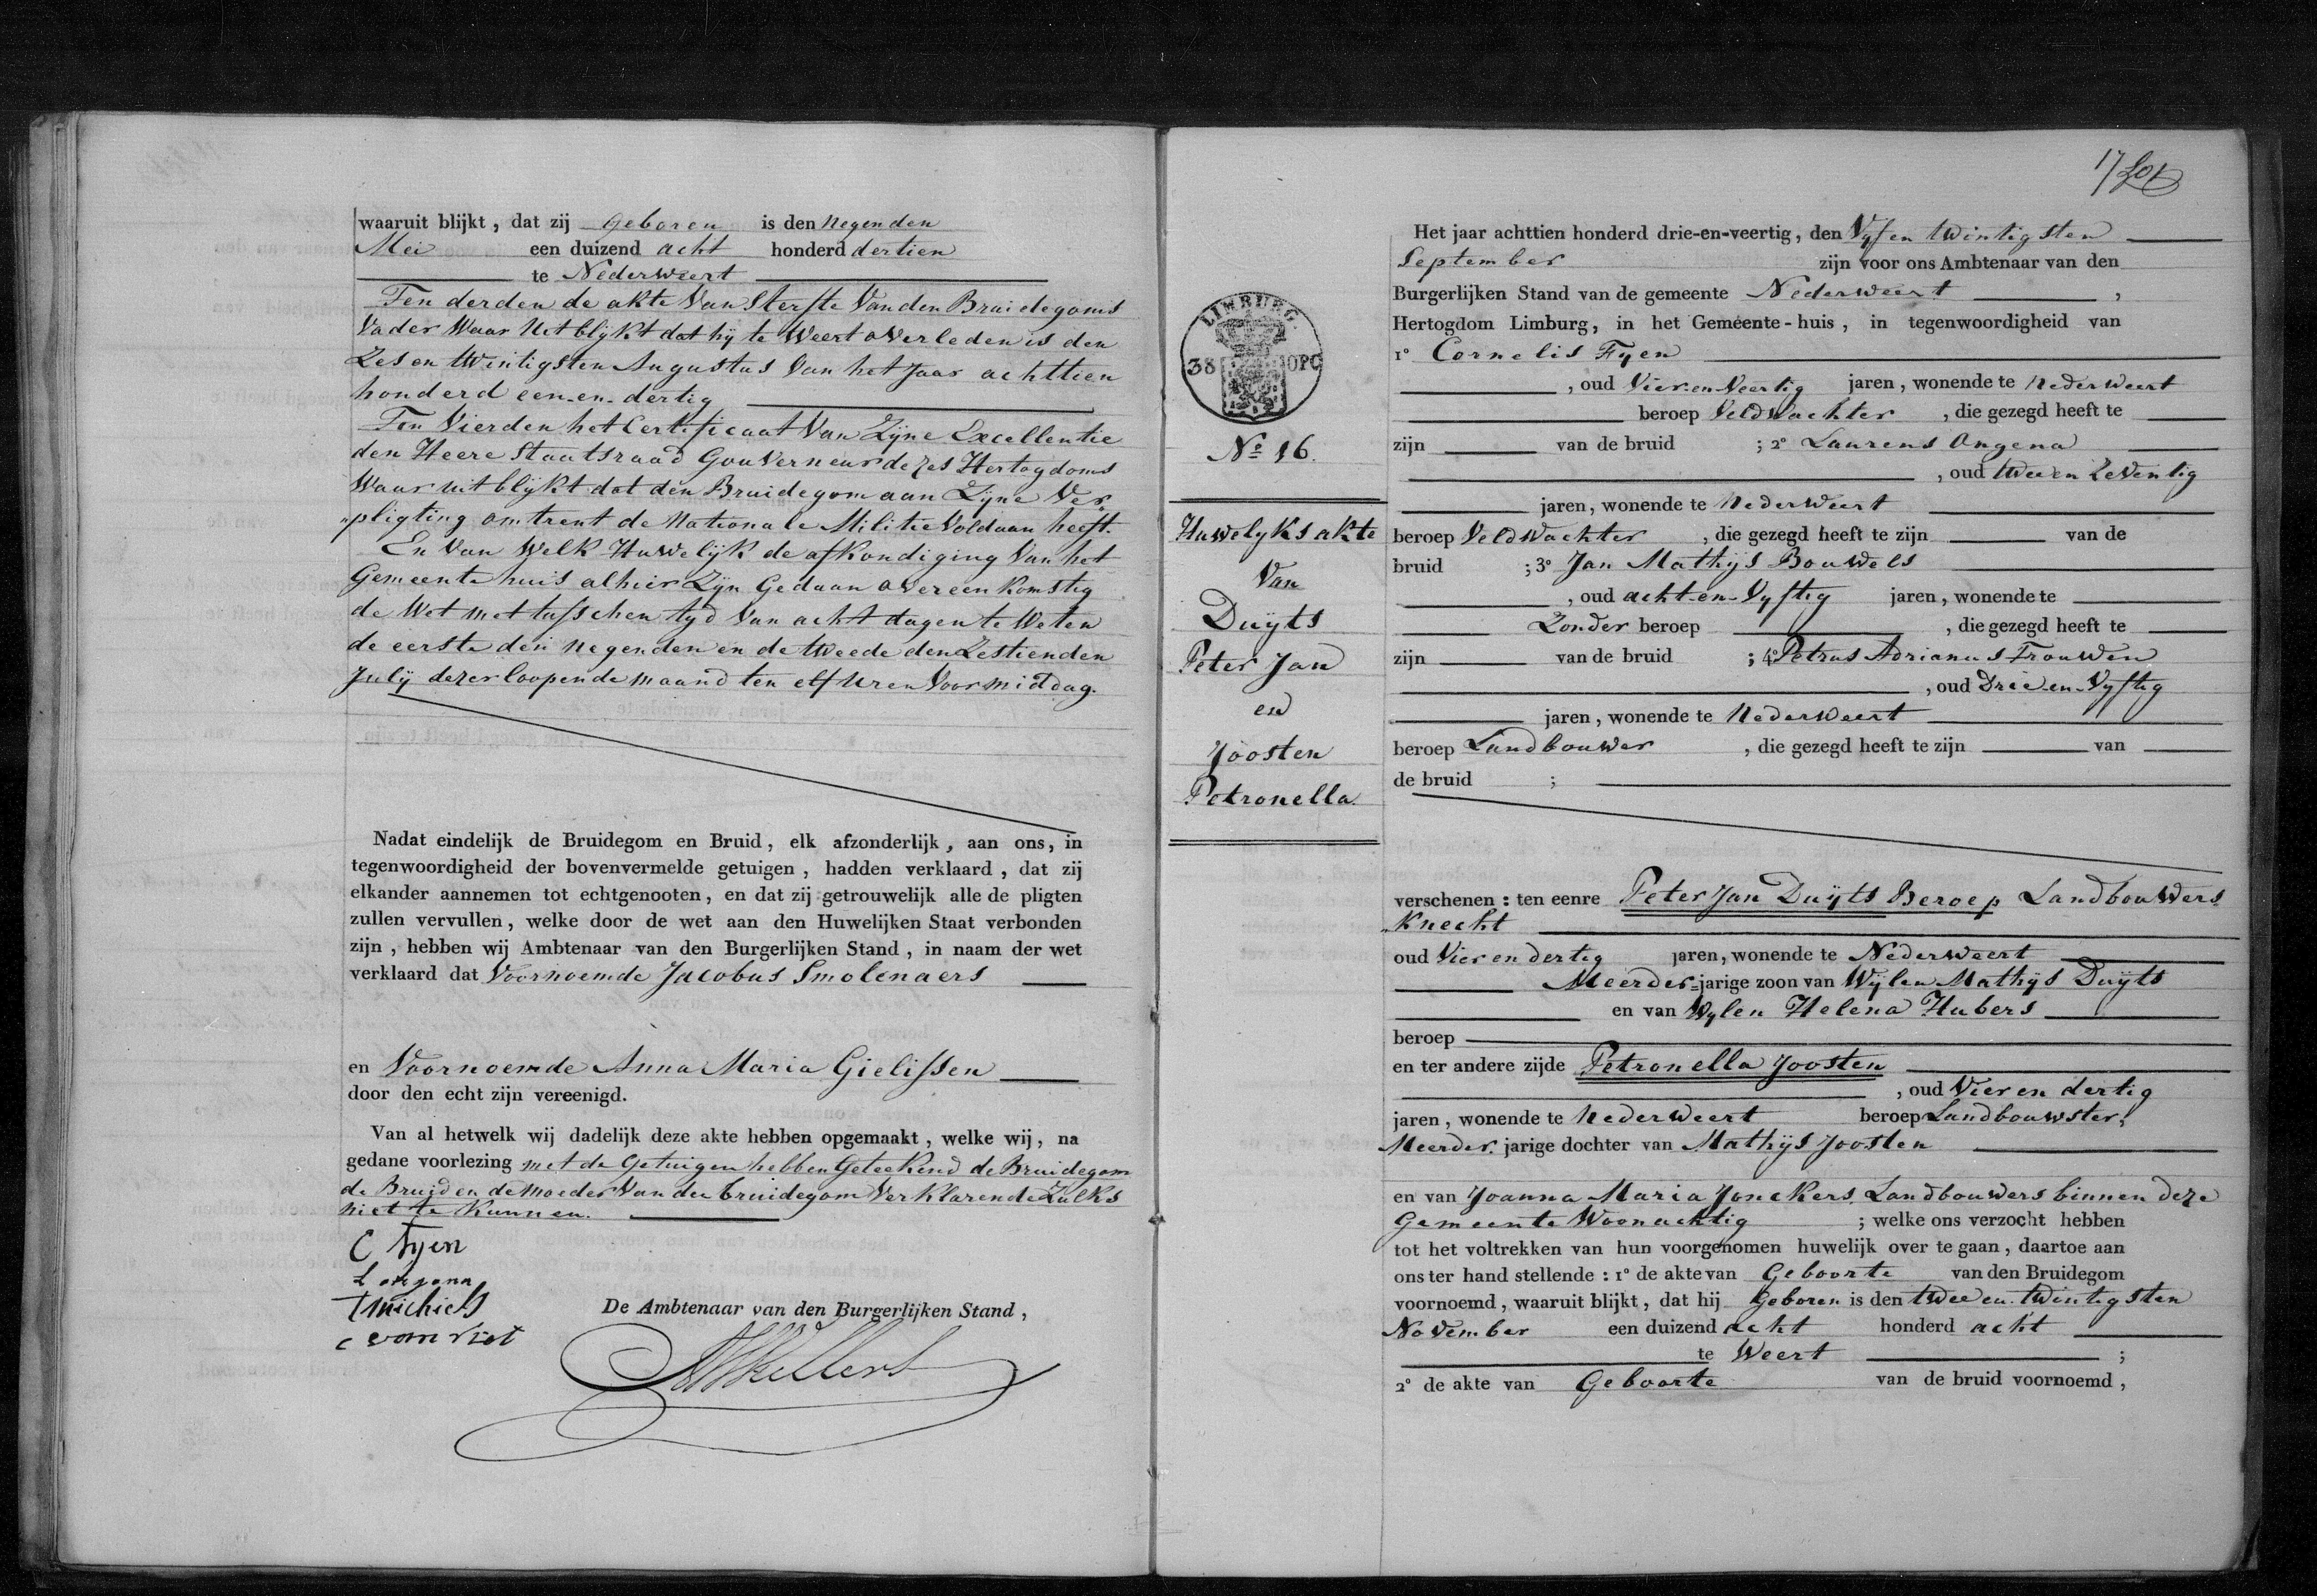 waaruit blijkt, dat zij geboren is den negenden
Mei een duizend acht honderd dertien
te Nederweert
Ten derden de akte Van Sterfte Van den Bruidegoms
Vader Waar Uit blÿkt dat hÿ te Weert overleden is den
Zes en twintigsten Augustus Van het Jaar achttien
honderd een-en-dertig
Ten Vierden het Certificaat Van Zÿne Excellentie
den Heere Staatsraad Gouverneur dezes Hertogdoms
Waar uit blÿkt dat den Bruidegom aan Zÿne Ver„
„pligting omtrent de Nationale Militie Voldaan heeft.
En Van Welk Huwelÿk de afkondiging Van het
Gemeente huis alhier Zÿn Gedaan overeenkomstig
de Wet met tusschen tyd Van acht dagen te Weten
de eerste den negenden en de tweede den Zestienden
Julÿ dezer loopende maand ten elf uren Voormiddag.
Nadat eindelijk de Bruidegom en Bruid, elk afzonderlijk, aan ons, in
tegenwoordigheid der bovenvermelde getuigen, hadden verklaard, dat zij
elkander aannemen tot echtgenooten, en dat zij getrouwelijk alle de pligten
zullen vervullen, welke door de wet aan den Huwelijken Staat verbonden
zijn, hebben wij Ambtenaar van den Burgerlijken Stand, in naam der wet
verklaard dat Voornoemde Jacobus Smolenaers
en Voornoemde Anna Maria Gielissen
door den echt zijn vereenigd.
Van al hetwelk wij dadelijk deze akte hebben opgemaakt, welke wij, na
gedane voorlezing met de Getuigen hebben Geteekend de Bruidegom
de Bruid en de moeder Van den bruidegom Verklarende Zulks
niet te Kunnen.
C Fyen
L ongena
Michiels
C van riet
De Ambtenaar van den Burgerlijken Stand,
17
Het jaar achttien honderd drie-en-veertig, den Vyf en twintigsten
September zijn voor ons Ambtenaar van den
Burgerlijken Stand van de gemeente Nederweert,
Hertogdom Limburg, in het Gemeente-huis, in tegenwoordigheid van
1° Cornelis Fyen
, oud Vier-en-Veertig jaren, wonende te Nederweert
beroep VeldWachter, die gezegd heeft te
zijn van de bruid ; 2° Laurens Ongena
, oud twee en Zeventig
jaren, wonende te Nederweert
beroep VeldWachter, die gezegd heeft te zijn van de
bruid ; 3° Jan Mathÿs Bouwels
, oud acht-en-Vyftig jaren, wonende te
Zonder beroep , die gezegd heeft te
zijn van de bruid ; 4° Petrus Adrianus Trouwen
, oud Drie-en-Vyftig
jaren, wonende te Nederweert
beroep Landbouwer, die gezegd heeft te zijn van
de bruid ;
LIMBURG.
38 OPC
No 16.
Huwelyksakte
Van
Duÿts
Peter Jan
en
Joosten
Petronella
verschenen: ten eenre Peter Jan Duÿts Beroep Landbouwers
Knecht
oud Vier en dertig jaren, wonende te Nederweert
Meerder-jarige zoon van Wÿlen Mathÿs Duÿts
en van Wylen Helena Hubers
beroep
en ter andere zijde Petronella Joosten
, oud Vier en dertig
jaren, wonende te Nederweert beroep Landbouwster,
Meerder jarige dochter van Mathÿs Joosten
en van Joanna Maria Jonckers Landbouwers binnen deze
Gemeente Woonachtig ; welke ons verzocht hebben
tot het voltrekken van hun voorgenomen huwelijk over te gaan, daartoe aan
ons ter hand stellende: 1° de akte van Geboorte van den Bruidegom
voornoemd, waaruit blijkt, dat hij Geboren is den twee en twintigsten
November een duizend acht honderd acht
te Weert ;
2° de akte van Geboorte van de bruid voornoemd,